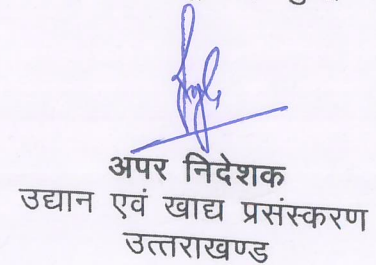 अपर निदेशक
उद्यान एवं खाद्य प्रसंस्करण
उत्तराखण्ड